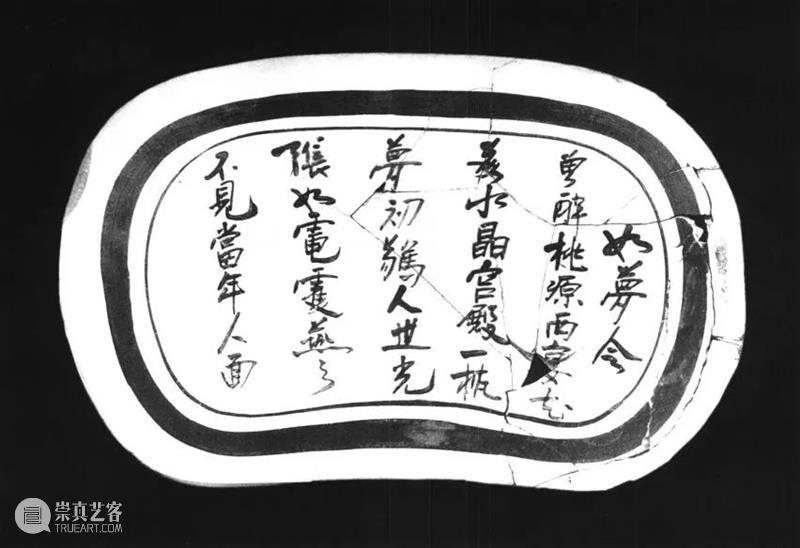 如夢令
曾醉桃源西宴花
落水晶宮殿一枕
夢初驚人世光
陰如電雙燕〻
不見當年人面
崇真艺客
TRUEART.COM